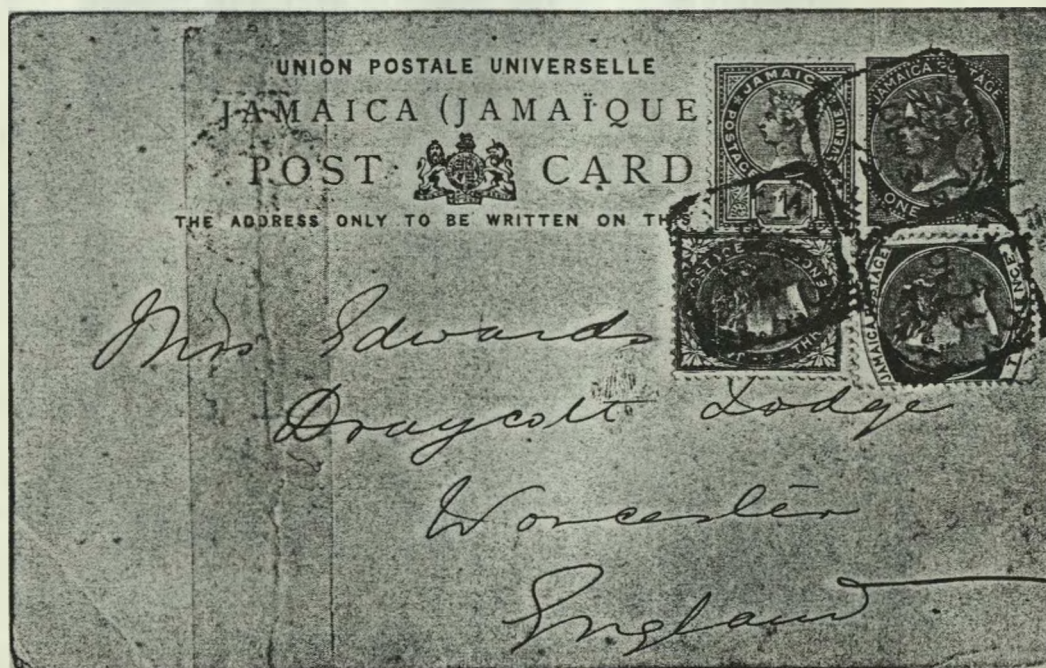 UNION POSTALE UNIVERSELLE
JAMAICA (JAMAÏQUE
POST CARD
THE ADDRESS ONLY TO BE WRITTEN ON THIS
JAMAICA
POSTAGE
REVENUE
1
JAMAICA POSTAGE
ONE
POSTAGE
JAMAICA POSTAGE
Mrs Edwards
Draycott Lodge
Worcester
England